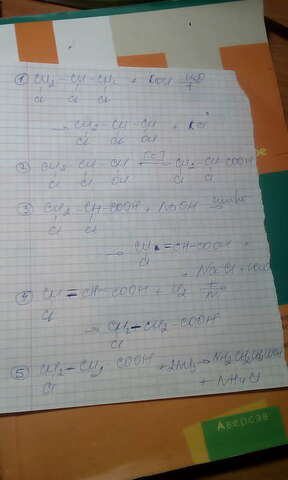 ① CH2 – CH – CH2 + KOH H2O
Cl Cl Cl
→ CH2 – CH – CH + KCl
Cl Cl OH
② CH2 CH CH [O] → CH2 – CH COOH
Cl Cl OH Cl Cl
③ CH2 – CH – COOH + NaOH
Cl Cl
→ CH = CH – COOH +
Cl
+ NaCl +
④ CH = CH – COOH + H2
Cl
→ CH2 – CH2 – COOH
Cl
⑤ CH2 – CH2 COOH + 2NH3 → NH2CH2CH2COOH
Cl + NH4Cl
Аверсэв